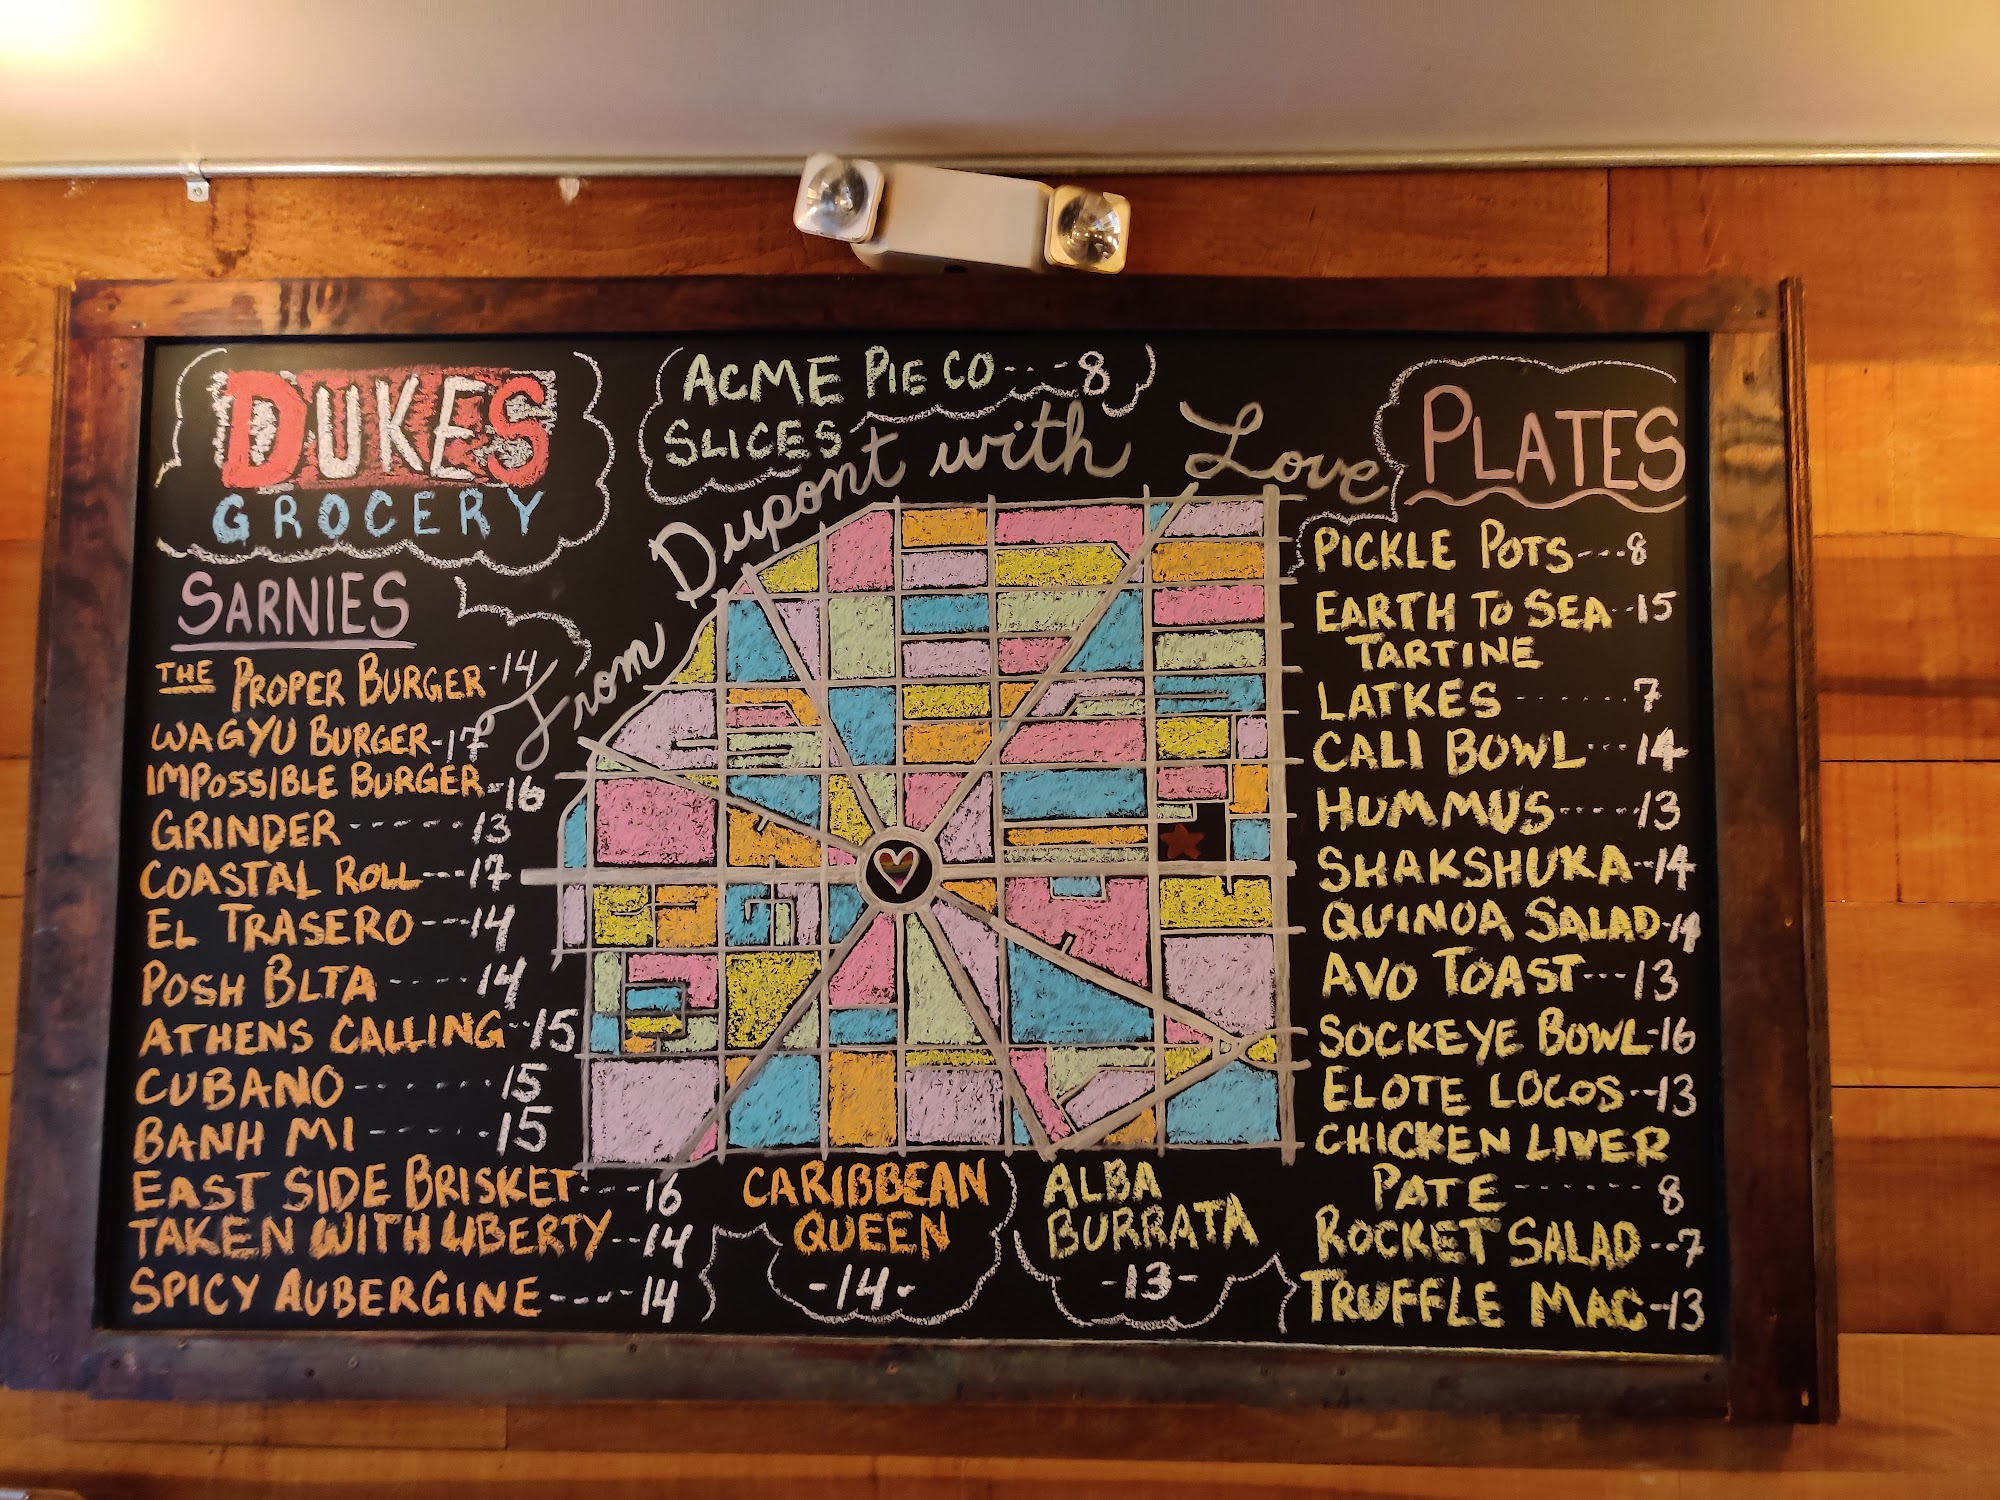 DUKES
GROCERY
SARNIES
THE PROPER BURGER -14
WAGYU BURGER-17
IMPOSSIBLE BURGER -16
GRINDER ------13
COASTAL ROLL ---17
EL TRASERO ---14
POSH BLTA -----14
ATHENS CALLING --15
CUBANO ------- 15
BANH MI ------15
EAST SIDE BRISKET---16
TAKEN WITH LIBERTY--14
SPICY AUBERGINE----14
ACME PIE CO ----8
SLICES
From Dupont with Love
CARIBBEAN
QUEEN
-14-
ALBA
BURRATA
-13-
PLATES
PICKLE POTS---8
EARTH TO SEA--15
TARTINE
LATKES ------7
CALI BOWL---14
HUMMUS----13
SHAKSHUKA--14
QUINOA SALAD-14
AVO TOAST---13
SOCKEYE BOWL-16
ELOTE LOCOS--13
CHICKEN LIVER
PATE ------- 8
ROCKET SALAD--7
TRUFFLE MAC-13